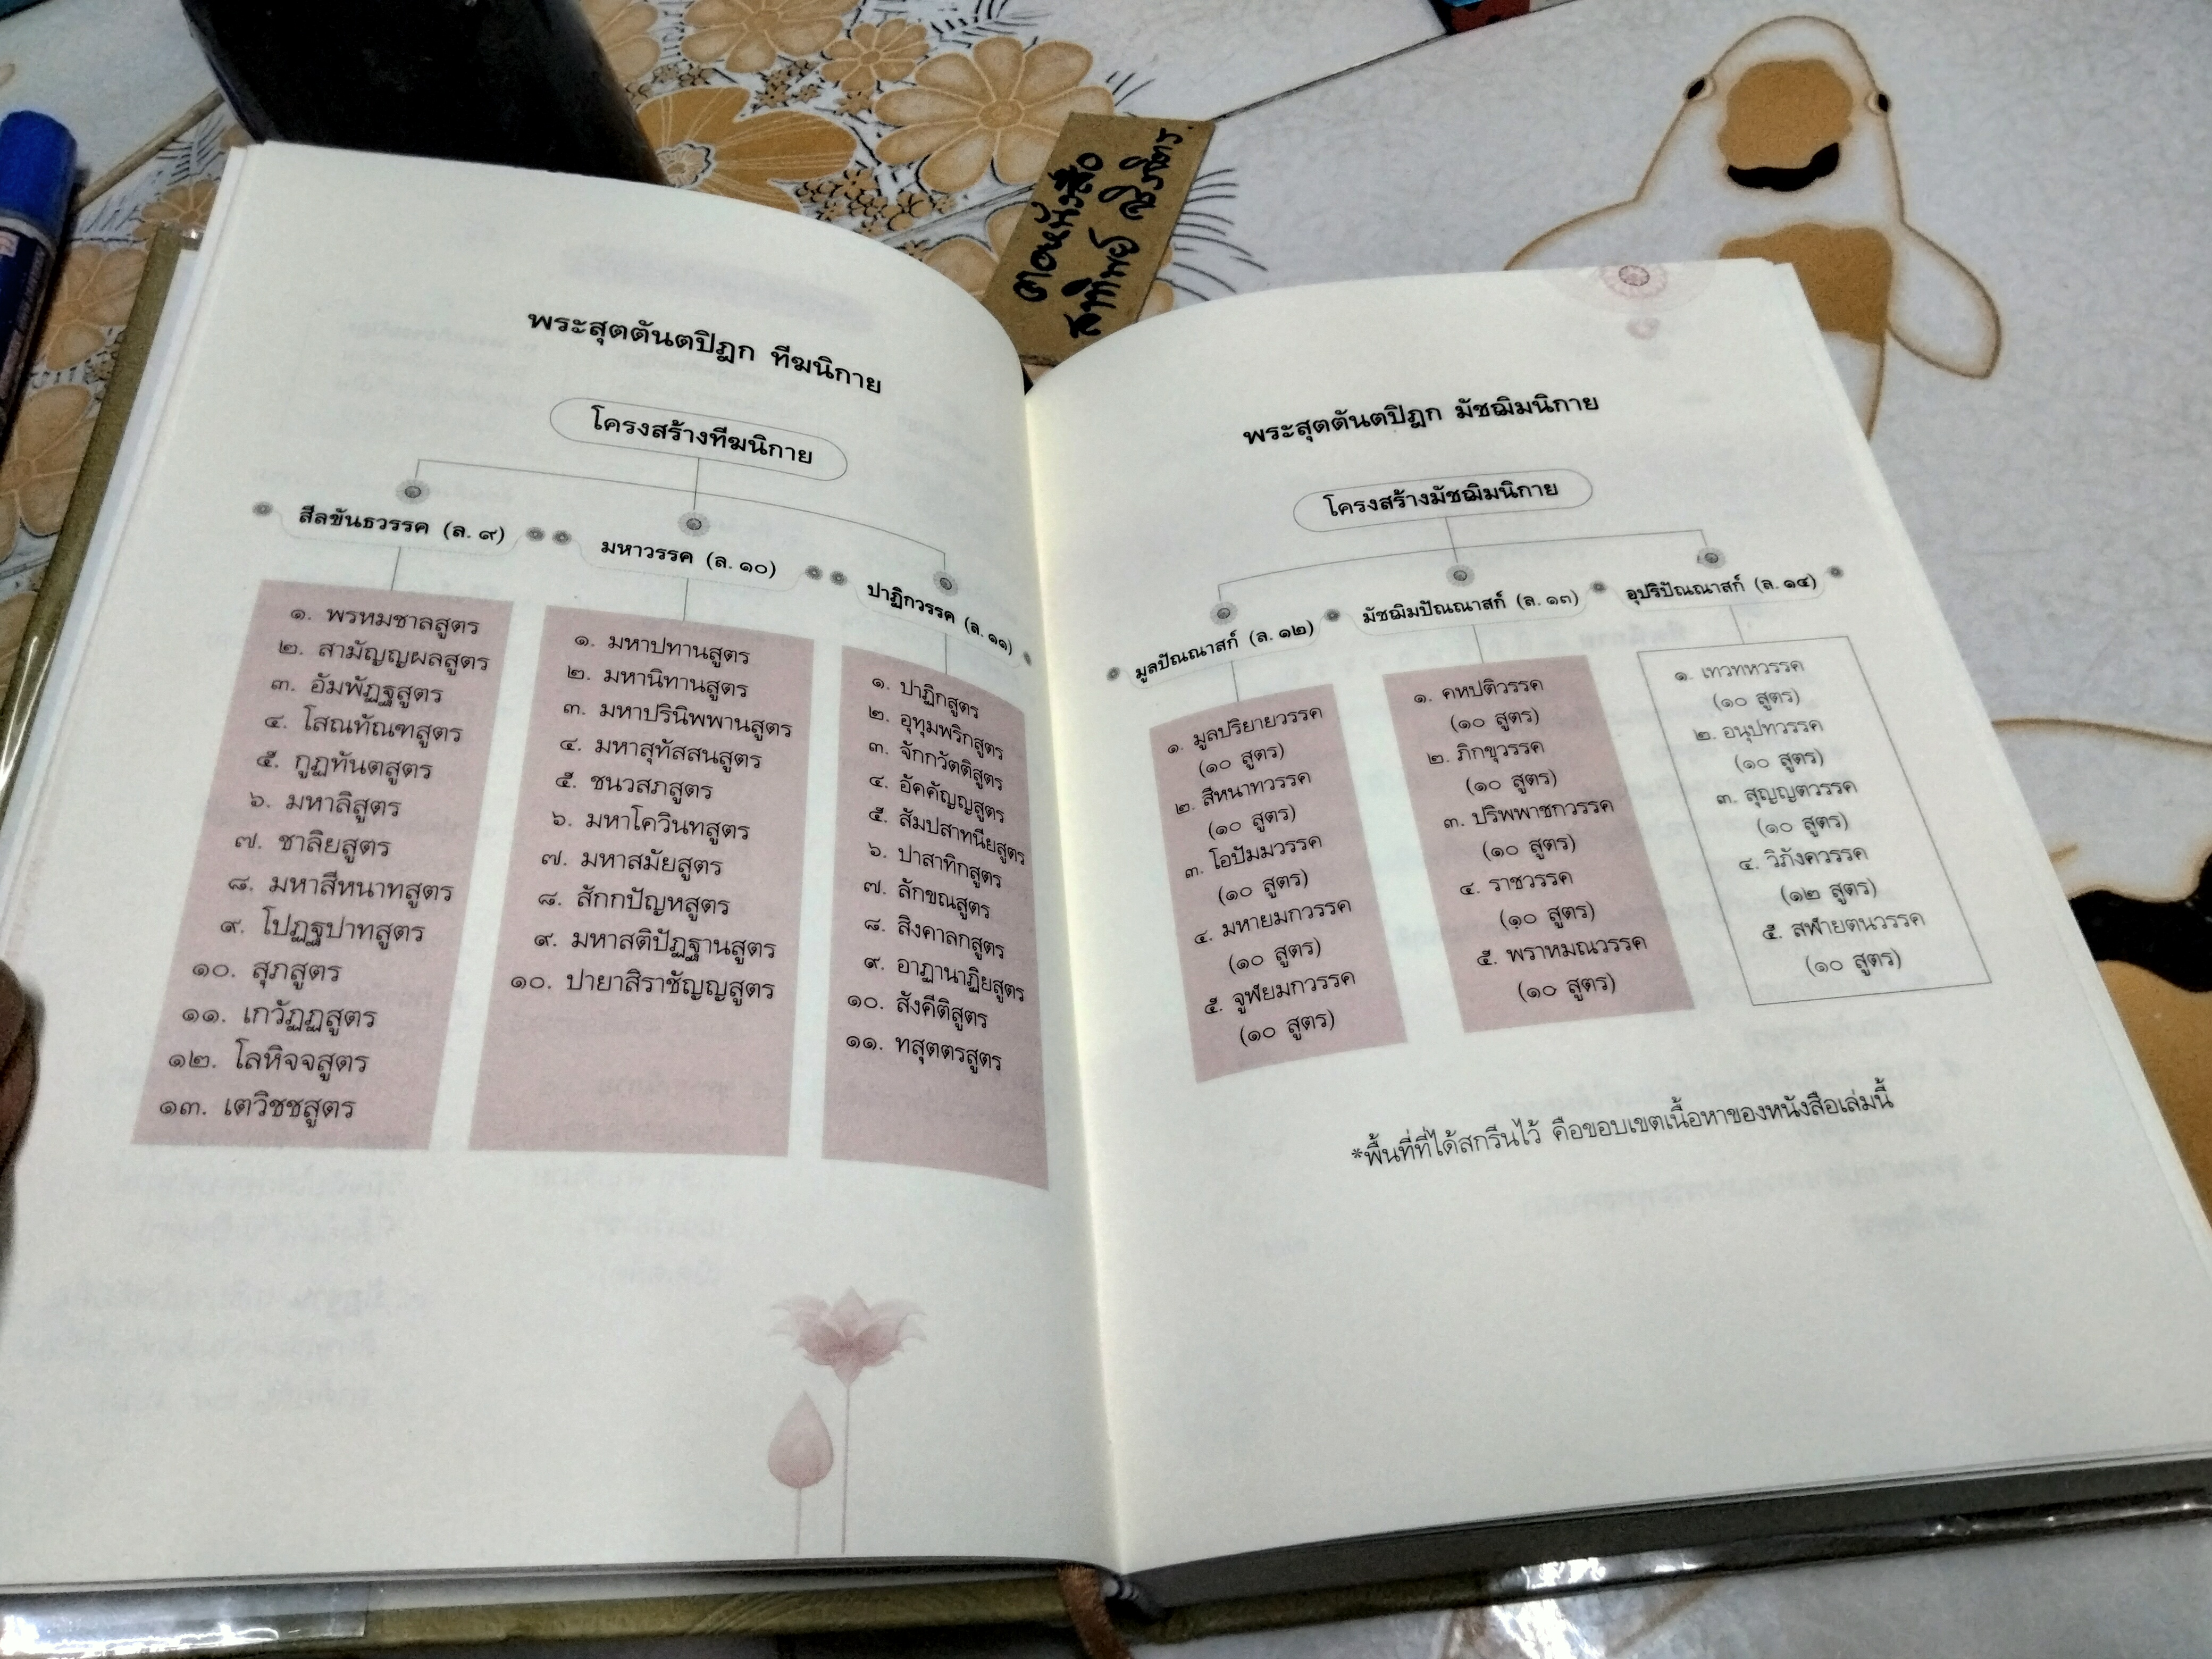 ตอหนังสือ
พระสุตตันตปิฎก ทีฆนิกาย
โครงสร้างทีฆนิกาย
สีลขันธวรรค (ล. ๙)
๑. พรหมชาลสูตร
๒. สามัญญผลสูตร
๓. อัมพัฏฐสูตร
๔. โสณทัณฑสูตร
๕. กูฏทันตสูตร
๖. มหาลิสูตร
๗. ชาลิยสูตร
๘. มหาสีหนาทสูตร
๙. โปฏฐปาทสูตร
๑๐. สุภสูตร
๑๑. เกวัฏฏสูตร
๑๒. โลหิจจสูตร
๑๓. เตวิชชสูตร
มหาวรรค (ล. ๑๐)
๑. มหาปทานสูตร
๒. มหานิทานสูตร
๓. มหาปรินิพพานสูตร
๔. มหาสุทัสสนสูตร
๕. ชนวสภสูตร
๖. มหาโควินทสูตร
๗. มหาสมัยสูตร
๘. สักกปัญหสูตร
๙. มหาสติปัฏฐานสูตร
๑๐. ปายาสิราชัญญสูตร
ปาฏิกวรรค (ล. ๑๑)
๑. ปาฏิกสูตร
๒. อุทุมพริกสูตร
๓. จักกวัตติสูตร
๔. อัคคัญญสูตร
๕. สัมปสาทนียสูตร
๖. ปาสาทิกสูตร
๗. ลักขณสูตร
๘. สิงคาลกสูตร
๙. อาฏานาฏิยสูตร
๑๐. สังคีติสูตร
๑๑. ทสุตตรสูตร
พระสุตตันตปิฎก มัชฌิมนิกาย
โครงสร้างมัชฌิมนิกาย
มูลปัณณาสก์ (ล. ๑๒)
๑. มูลปริยายวรรค
(๑๐ สูตร)
๒. สีหนาทวรรค
(๑๐ สูตร)
๓. โอปัมมวรรค
(๑๐ สูตร)
๔. มหายมกวรรค
(๑๐ สูตร)
๕. จูฬยมกวรรค
(๑๐ สูตร)
มัชฌิมปัณณาสก์ (ล. ๑๓)
๑. คหปติวรรค
(๑๐ สูตร)
๒. ภิกขุวรรค
(๑๐ สูตร)
๓. ปริพพาชกวรรค
(๑๐ สูตร)
๔. ราชวรรค
(๑๐ สูตร)
๕. พราหมณวรรค
(๑๐ สูตร)
อุปริปัณณาสก์ (ล. ๑๔)
๑. เทวทหวรรค
(๑๐ สูตร)
๒. อนุปทวรรค
(๑๐ สูตร)
๓. สุญญตวรรค
(๑๐ สูตร)
๔. วิภังควรรค
(๑๒ สูตร)
๕. สฬายตนวรรค
(๑๐ สูตร)
*พื้นที่ที่ได้สกรีนไว้ คือขอบเขตเนื้อหาของหนังสือเล่มนี้